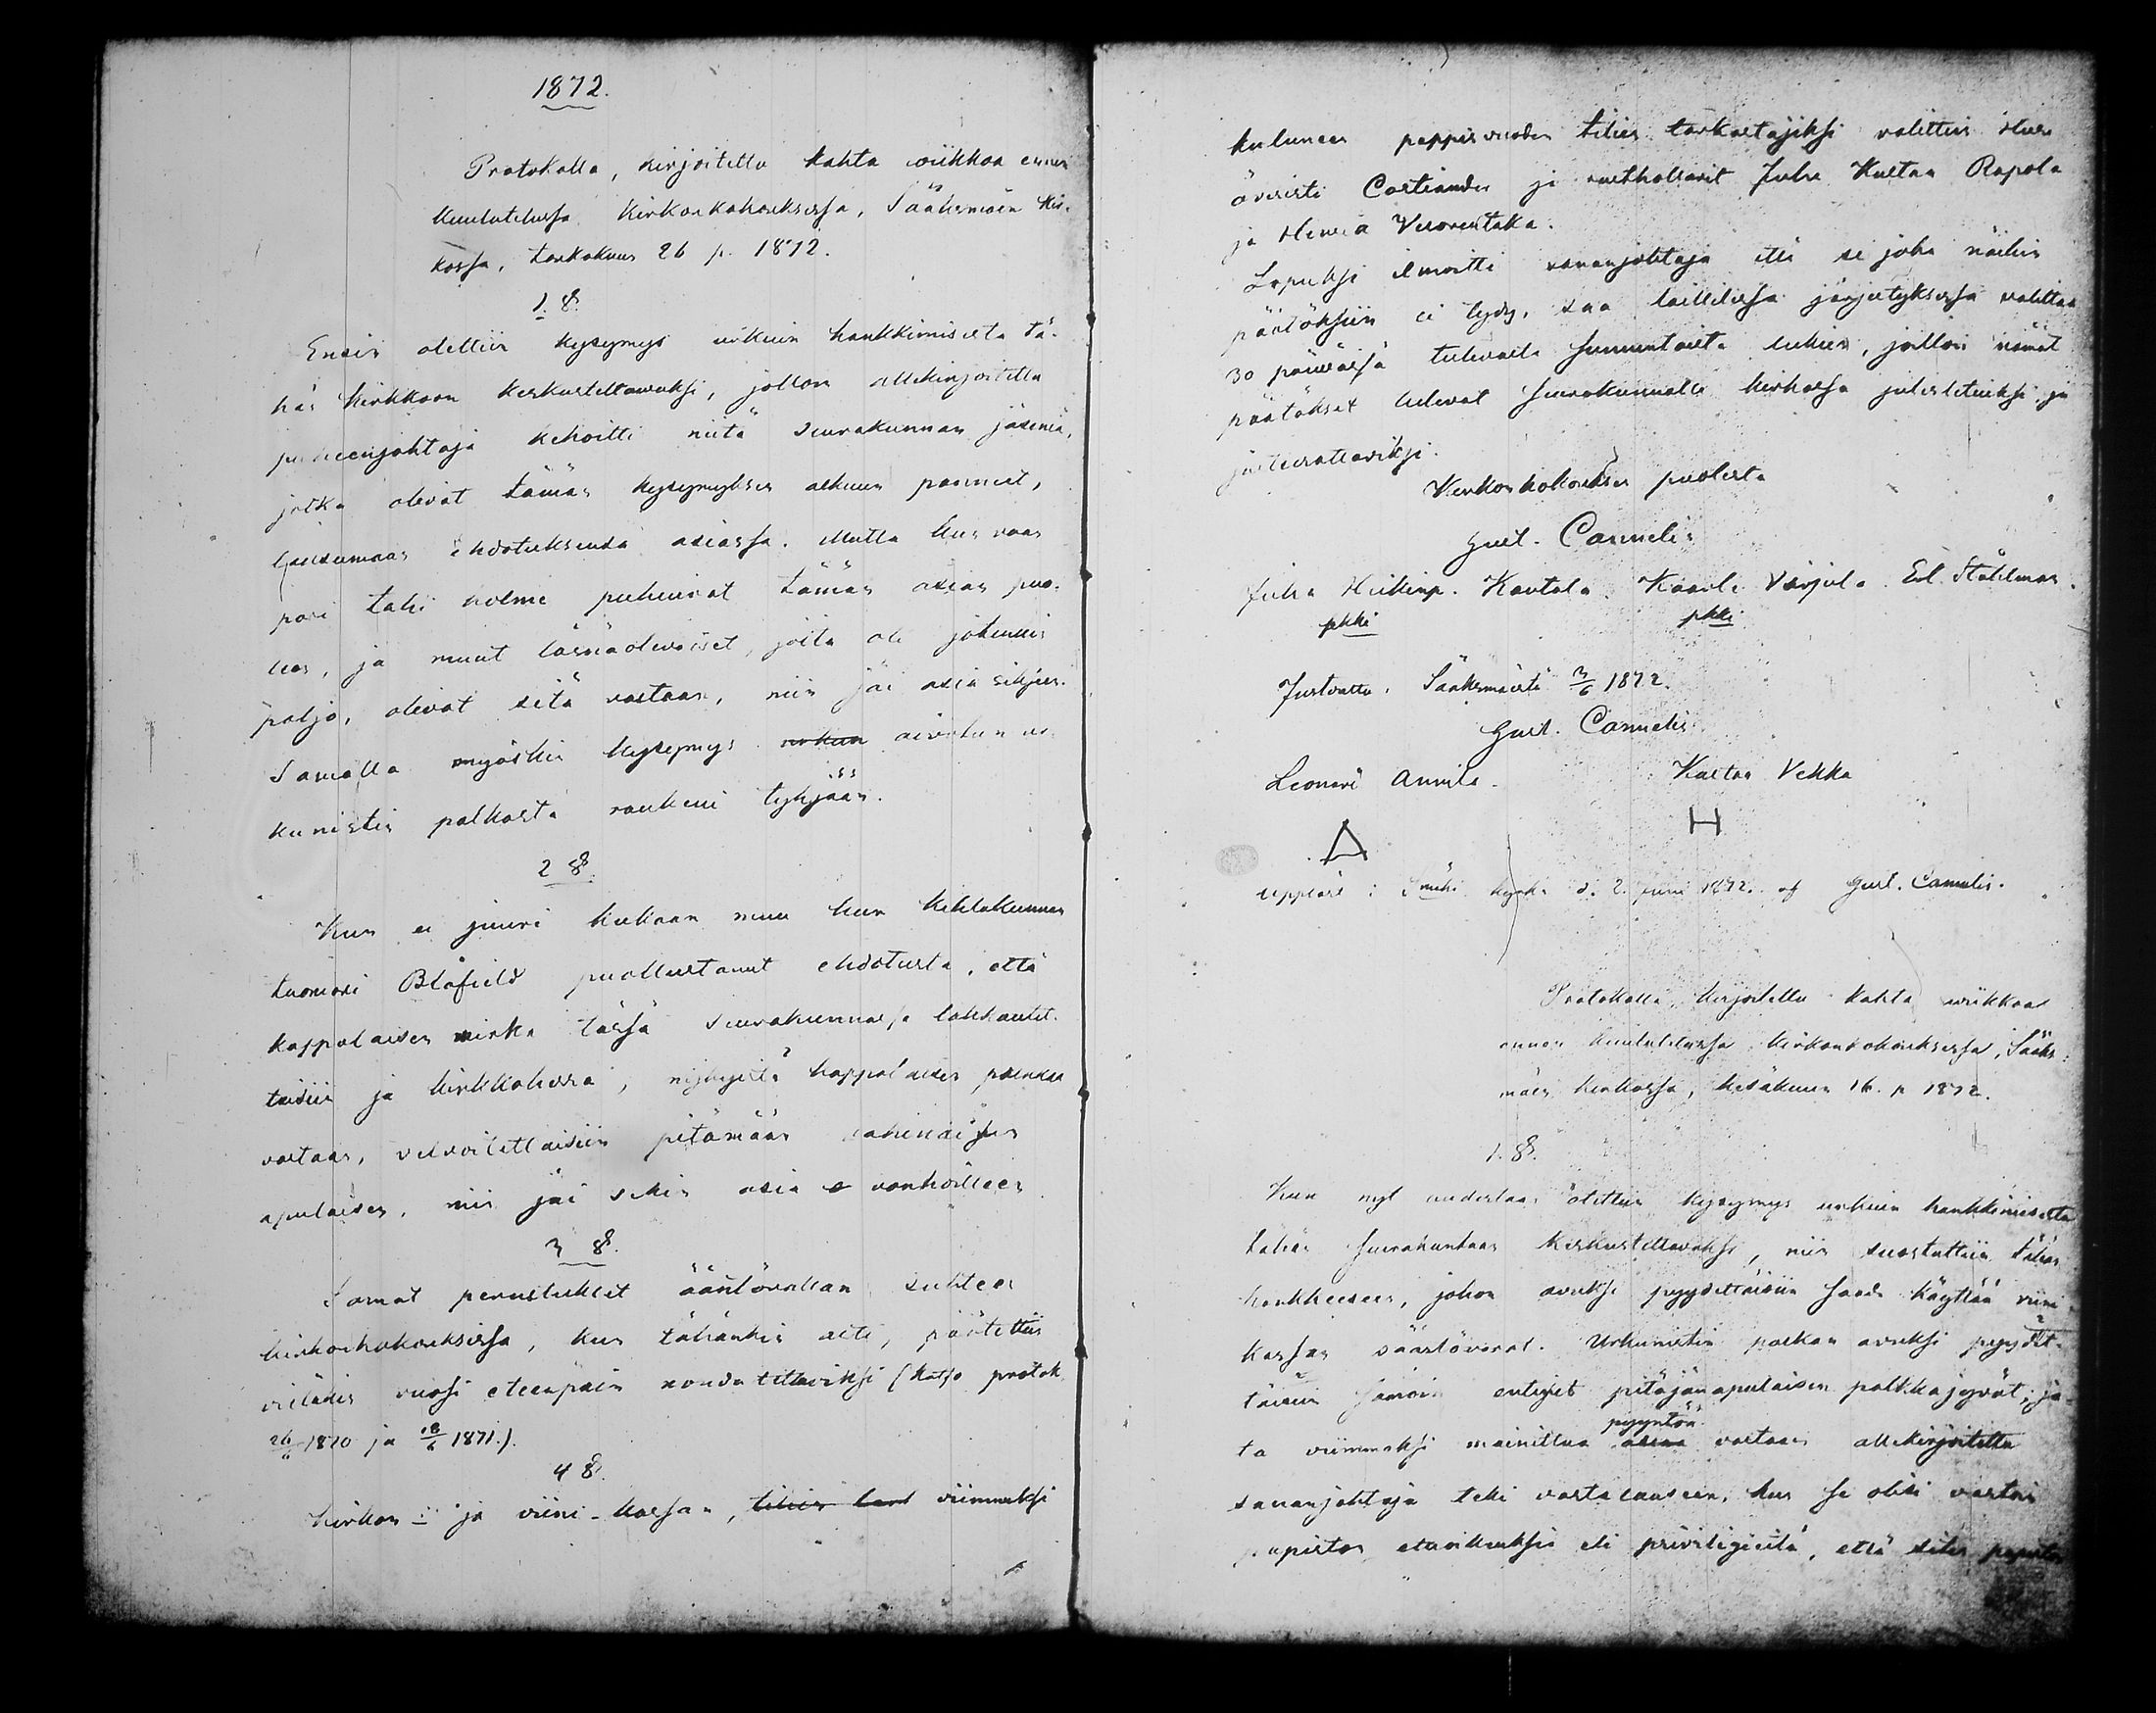 1872.
Protokolla, kirjoitettu kahta wiikkoa ennen
kuulutetussa kirkonkokouksessa, Sääksmäen kir-
kossa, toukokuun 26 p. 1872.
1. §.
Ensin otettiin kysymys urkuin hankkimisesta tä-
hän kirkkoon keskusteltawaksi, jolloin allekirjoitettu
puheenjohtaja kehoitti niitä seurakunnan jäseniä,
jotka olivat tämän kysymyksen alkuun panneet,
lausumaan ehdotuksensa asiassa. Mutta kun vaan
pari tahi kolme puhuivat tämän asian puo-
lesta, ja muut läsnäolevaiset, joita oli jotenkin
paljo, olivat sitä vastaan, niin jäi asia siksensä.
Samalla myöskin kysymys urkun aiwotun ur-
kunistin palkasta raukeni tyhjään.
2 §.
Kun ei juuri kukaan muu kun kihlakunnan
tuomari Blåfield puollustanut ehdotusta, että
kappalaisen virka tässä seurakunnassa lakkautet-
taisiin ja kirkkoherra, nykyistä kappalaisen palkkaa
vastaan, velvoitettaisiin pitämään vakinaisen
apulaisen, niin jäi sekin asia e vanhoilleen
3 §.
Samat perustukset ääntövallan suhteen
kirkonkokouksissa, kun tähänkin asti, päätettiin
vieläkin vuosi eteenpäin noudatettaviksi (katso protok.
26/6 1870 ja 18/6 1871.).
4 §.
Kirkon- ja viini-kassan, tilien tark viimmeksi
kuluneen pappisvuoden tilien tarkastajiksi valittiin Herra
översti Costiander ja rusthollarit Juha Kustaa Rapola
ja Henrik Vuorentaka.
Lopuksi ilmoitti esimiesjohtaja että se joka näihin
päätöksiin ei tydy, saa laillisessa järjestyksessä valittaa
30 päiwässä tulevasta sunnuntaista lukien, jolloin nämät
päätökset tulevat seurakunnalle kirkossa julistetuiksi ja
justeerattaviksi.
Kirkonkokouksen puolesta
Gust. Cannelin
Juha Heikinp. Kantala. Kaarle Värjula. Ed. Ståhlman.
pkki pkki
Justeerattu. Sääksmäestä 2/6 1872.
Gust. Cannelin
Leonard Annila. Kustaa Vekka
H
uppläst i Sääksmäki kyrka d. 2 juni 1872. af Gust. Cannelin.
Protokolla, kirjoitettu kahta wiikkoa
ennen kuulutetussa kirkonkokouksessa, Sääks-
mäen kirkossa, kesäkuun 16. p 1872.
1. §.
Kun nyt uudestaan otettiin kysymys urkuin hankkimisesta
tähän seurakuntaan keskusteltavaksi, niin suostuttiin tähän
hankkeeseen, johon avuksi pyydettäisiin saada käyttää viini-
kassan säästövarat. Urkunistin palkan avuksi pyydet-
täisiin samoin entiset pitäjänapulaisen palkkajyvät; jo-
ta viimmeksi mainittua asiaa pyyntöä vastaan allekirjoitettu
esimiesjohtaja teki vastalauseen, kun se olisi vastoin
papiston etuoikeuksia eli privilegioita, että siten papiston